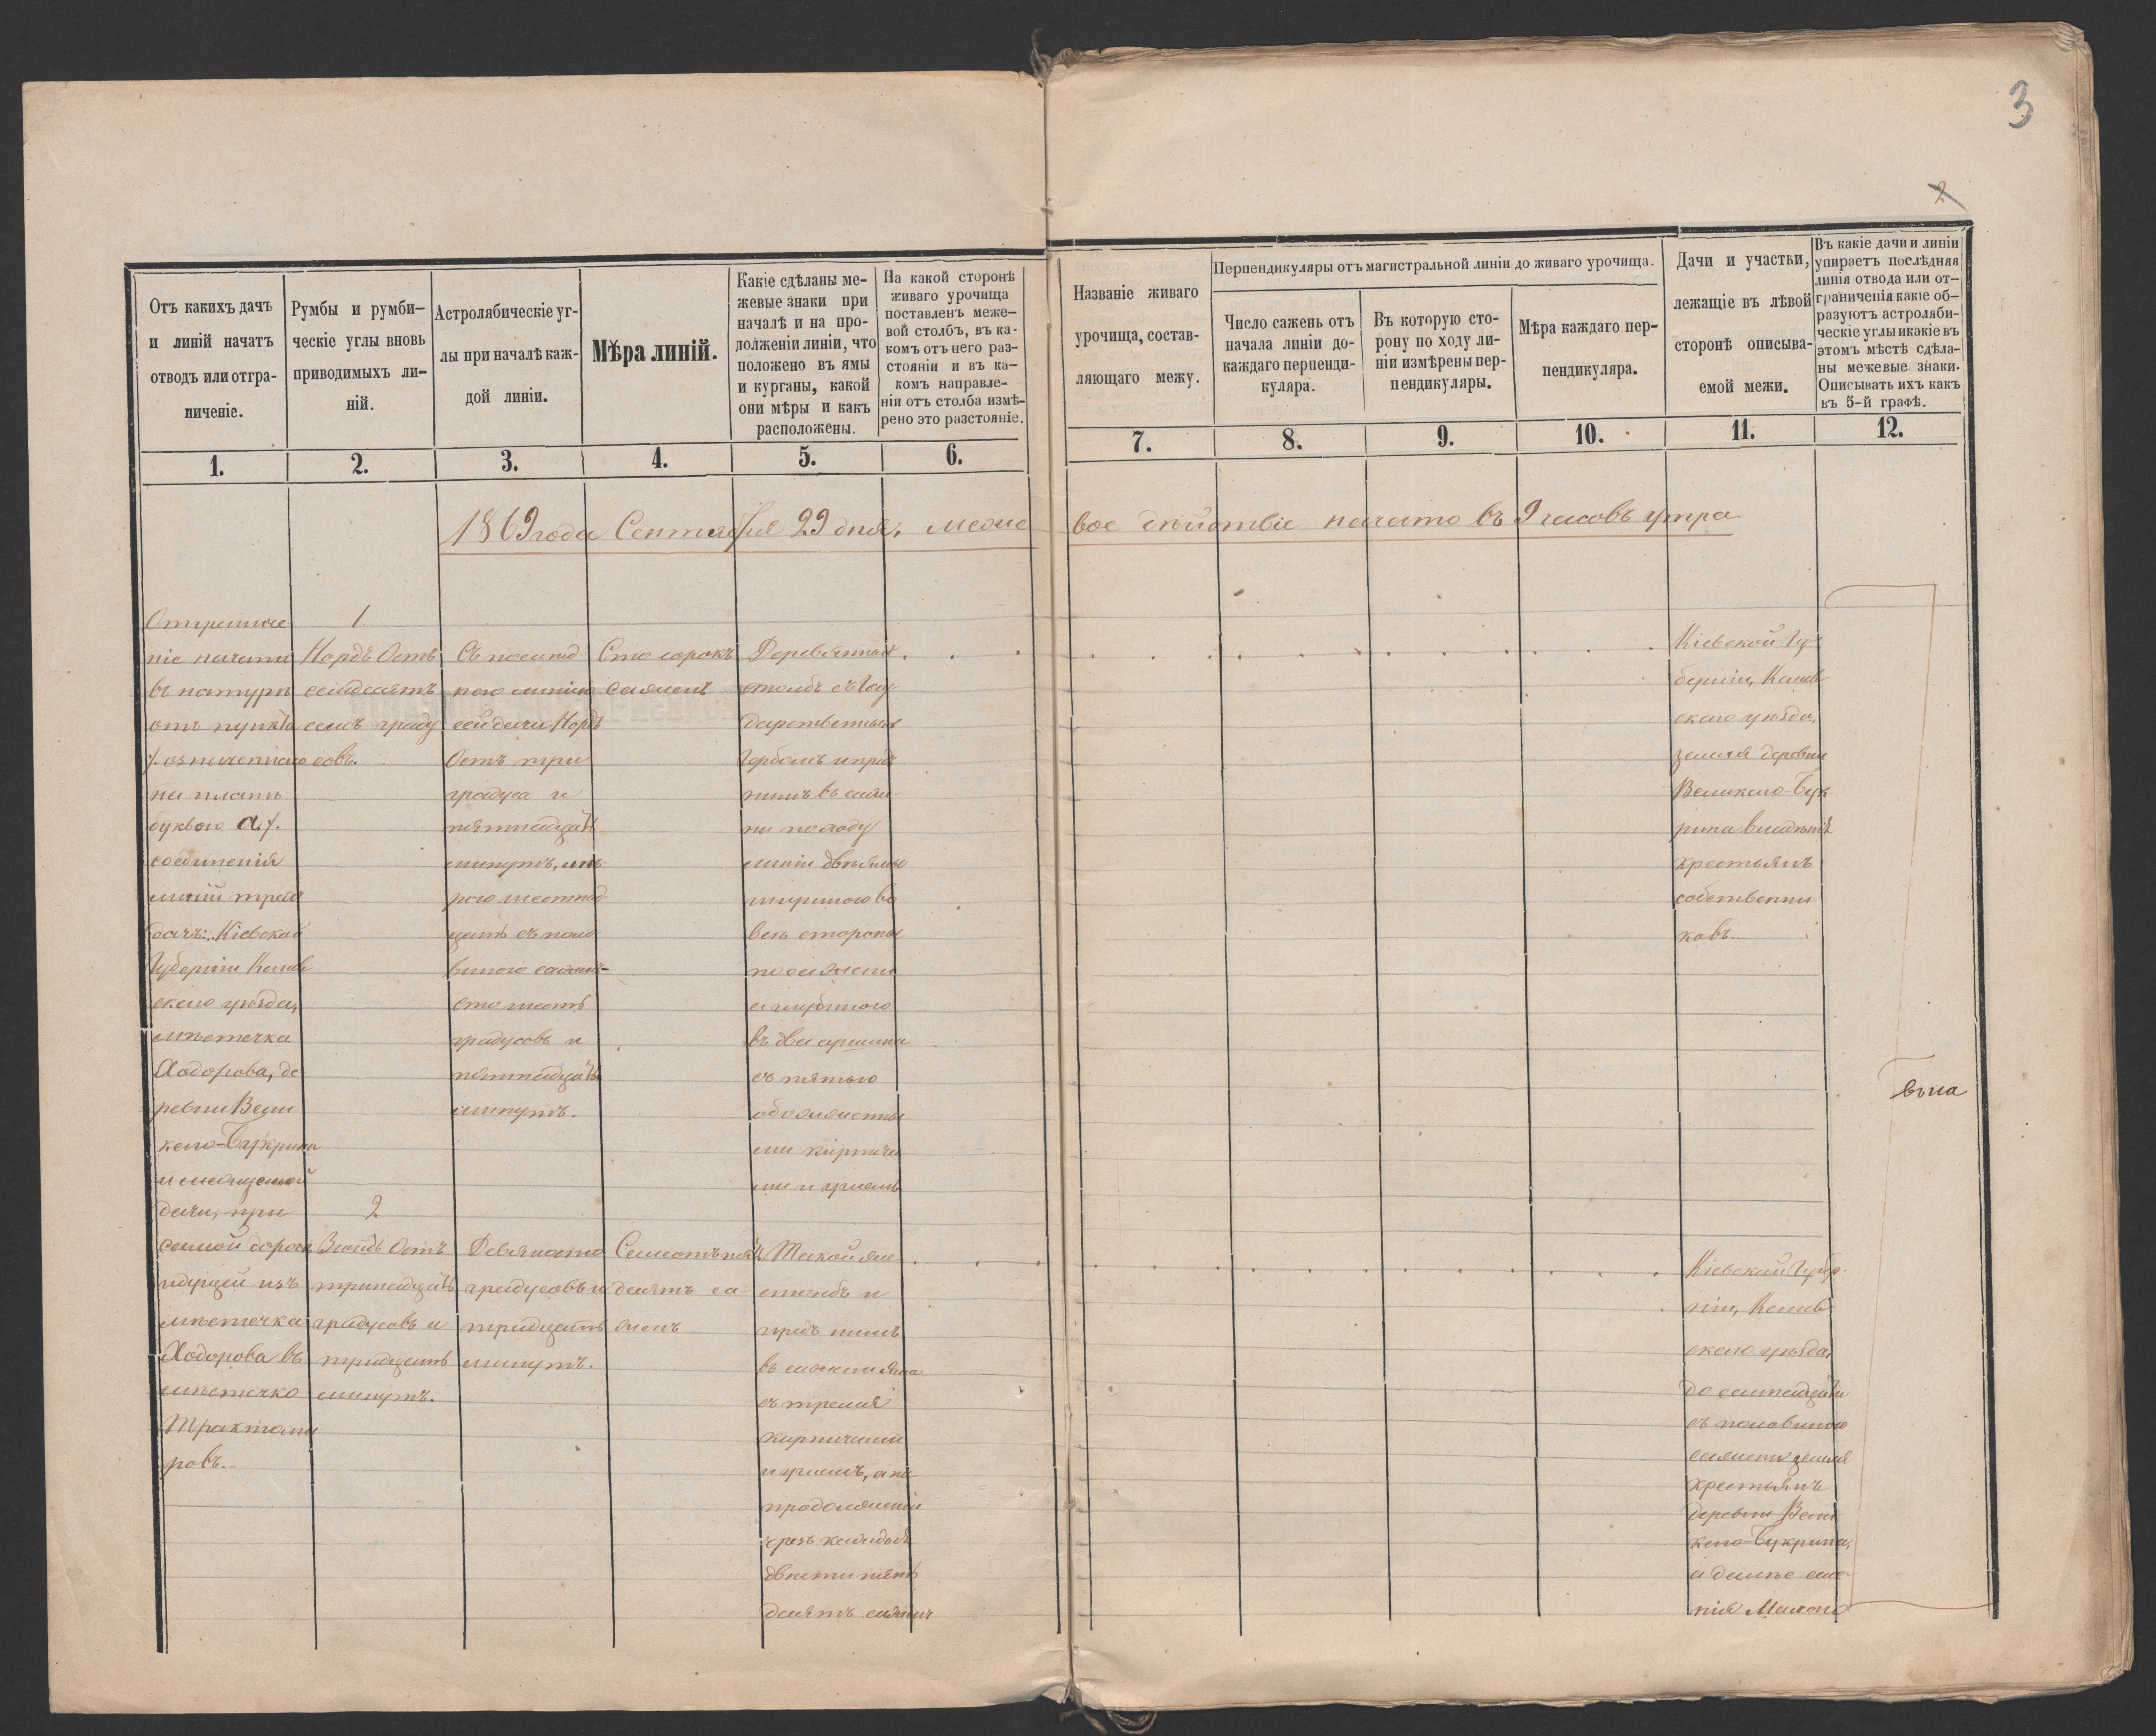 3
2
Отъ какихъ дачъ
и линій начатъ
отводъ или отгра-
ниченіе.
Румбы и румби-
ческіе углы вновь
приводимыхъ ли-
ній.
Астролябическіе уг-
лы при началѣ каж-
дой линіи.
Мѣра линій.
Какіе сдѣланы ме-
жевые знаки при
началѣ и на про-
долженіи линіи, что
положено въ ямы
и курганы, какой
они мѣры и какъ
расположены.
На какой сторонѣ
живаго урочища
поставленъ меже-
вой столбъ, въ ка-
комъ отъ него раз-
стояніи и въ ка-
комъ направле-
ніи отъ столба измѣ-
рено это разстояніе.
Названіе живаго
урочища, состав-
ляющаго межу.
Перпендикуляры отъ магистральной линіи до живаго урочища.
Число сажень отъ
начала линіи до
каждаго перпенди-
куляра.
Въ которую сто-
рону по ходу ли-
ніи измѣрены пер-
пендикуляры.
Мѣра каждаго пер-
пендикуляра.
Дачи и участки,
лежащіе въ лѣвой
сторонѣ описыва-
емой межи.
Въ какіе дачи и линіи
упираетъ послѣдняя
линія отвода или от-
граниченія какіе об-
разуютъ астроляби-
ческіе углы и какіе въ
этомъ мѣстѣ сдѣла-
ны межевые знаки.
Описывать ихъ какъ
въ 5-й графѣ.
1. 2. 3. 4. 5. 6. 7. 8. 9. 10. 11. 12.
1869 года Сентября 29 дня, меже вое дѣйствіе начато въ 9 часовъ утра
Отграниче
ніе начато
въ натурѣ
отъ пункта
/. означеннаго
на планѣ
буквою а./.
соединенія
линій трехъ
дачъ: Кіевской
Губерніи Канев
скаго уѣзда,
мѣстечка
Ходорова, де
ревни Вели
каго-Букрина
и
дачи, при
самой дорогѣ
идущей изъ
мѣстечка
Ходорова въ
мѣстечко
Трактоми
ровъ.
1
Нордъ Остъ
семдесятъ
семь граду
совъ.
Съ
линіею
сей дачи Нордъ
Остъ три
градуса и
пятнадцать
минутъ,
градусовъ и
пятнадцать
минутъ.
Сто сорокъ
сажень
Деревянный
столбъ съ Госу
дарственнымъ
Гербомъ и предъ
нимъ въ саже
ни по ходу
линіи двѣ ямы
шириною во
всѣ стороны
по сажени
а глубиною
въ два аршина
съ пятью
обожженны
ми кирпича
ми и углемъ
Кіевской Гу-
берніи, Канев
скаго уѣзда,
земля деревни
Великаго-Бук
рина владѣнія
крестьянъ
собственни
ковъ.
2
Зюйдъ Остъ
тринадцать
градусовъ и
тридцать
минутъ.
Девяносто
градусовъ и
тридцать
минутъ.
Семсотъ пять
десятъ са-
жень
Такой же
столбъ и
предъ нимъ
въ сажени яма
съ тремя
кирпичами
и углемъ, а по
продолженіи
чрезъ каждыя
двѣсти пять
десятъ сажень
Кіевской Губер-
ніи, Канев
скаго уѣзда,
до семнадцати
съ половиною
сажень земля
крестьянъ
деревни Вели
каго-Букрина,
а далѣе селе-
нія Малаго